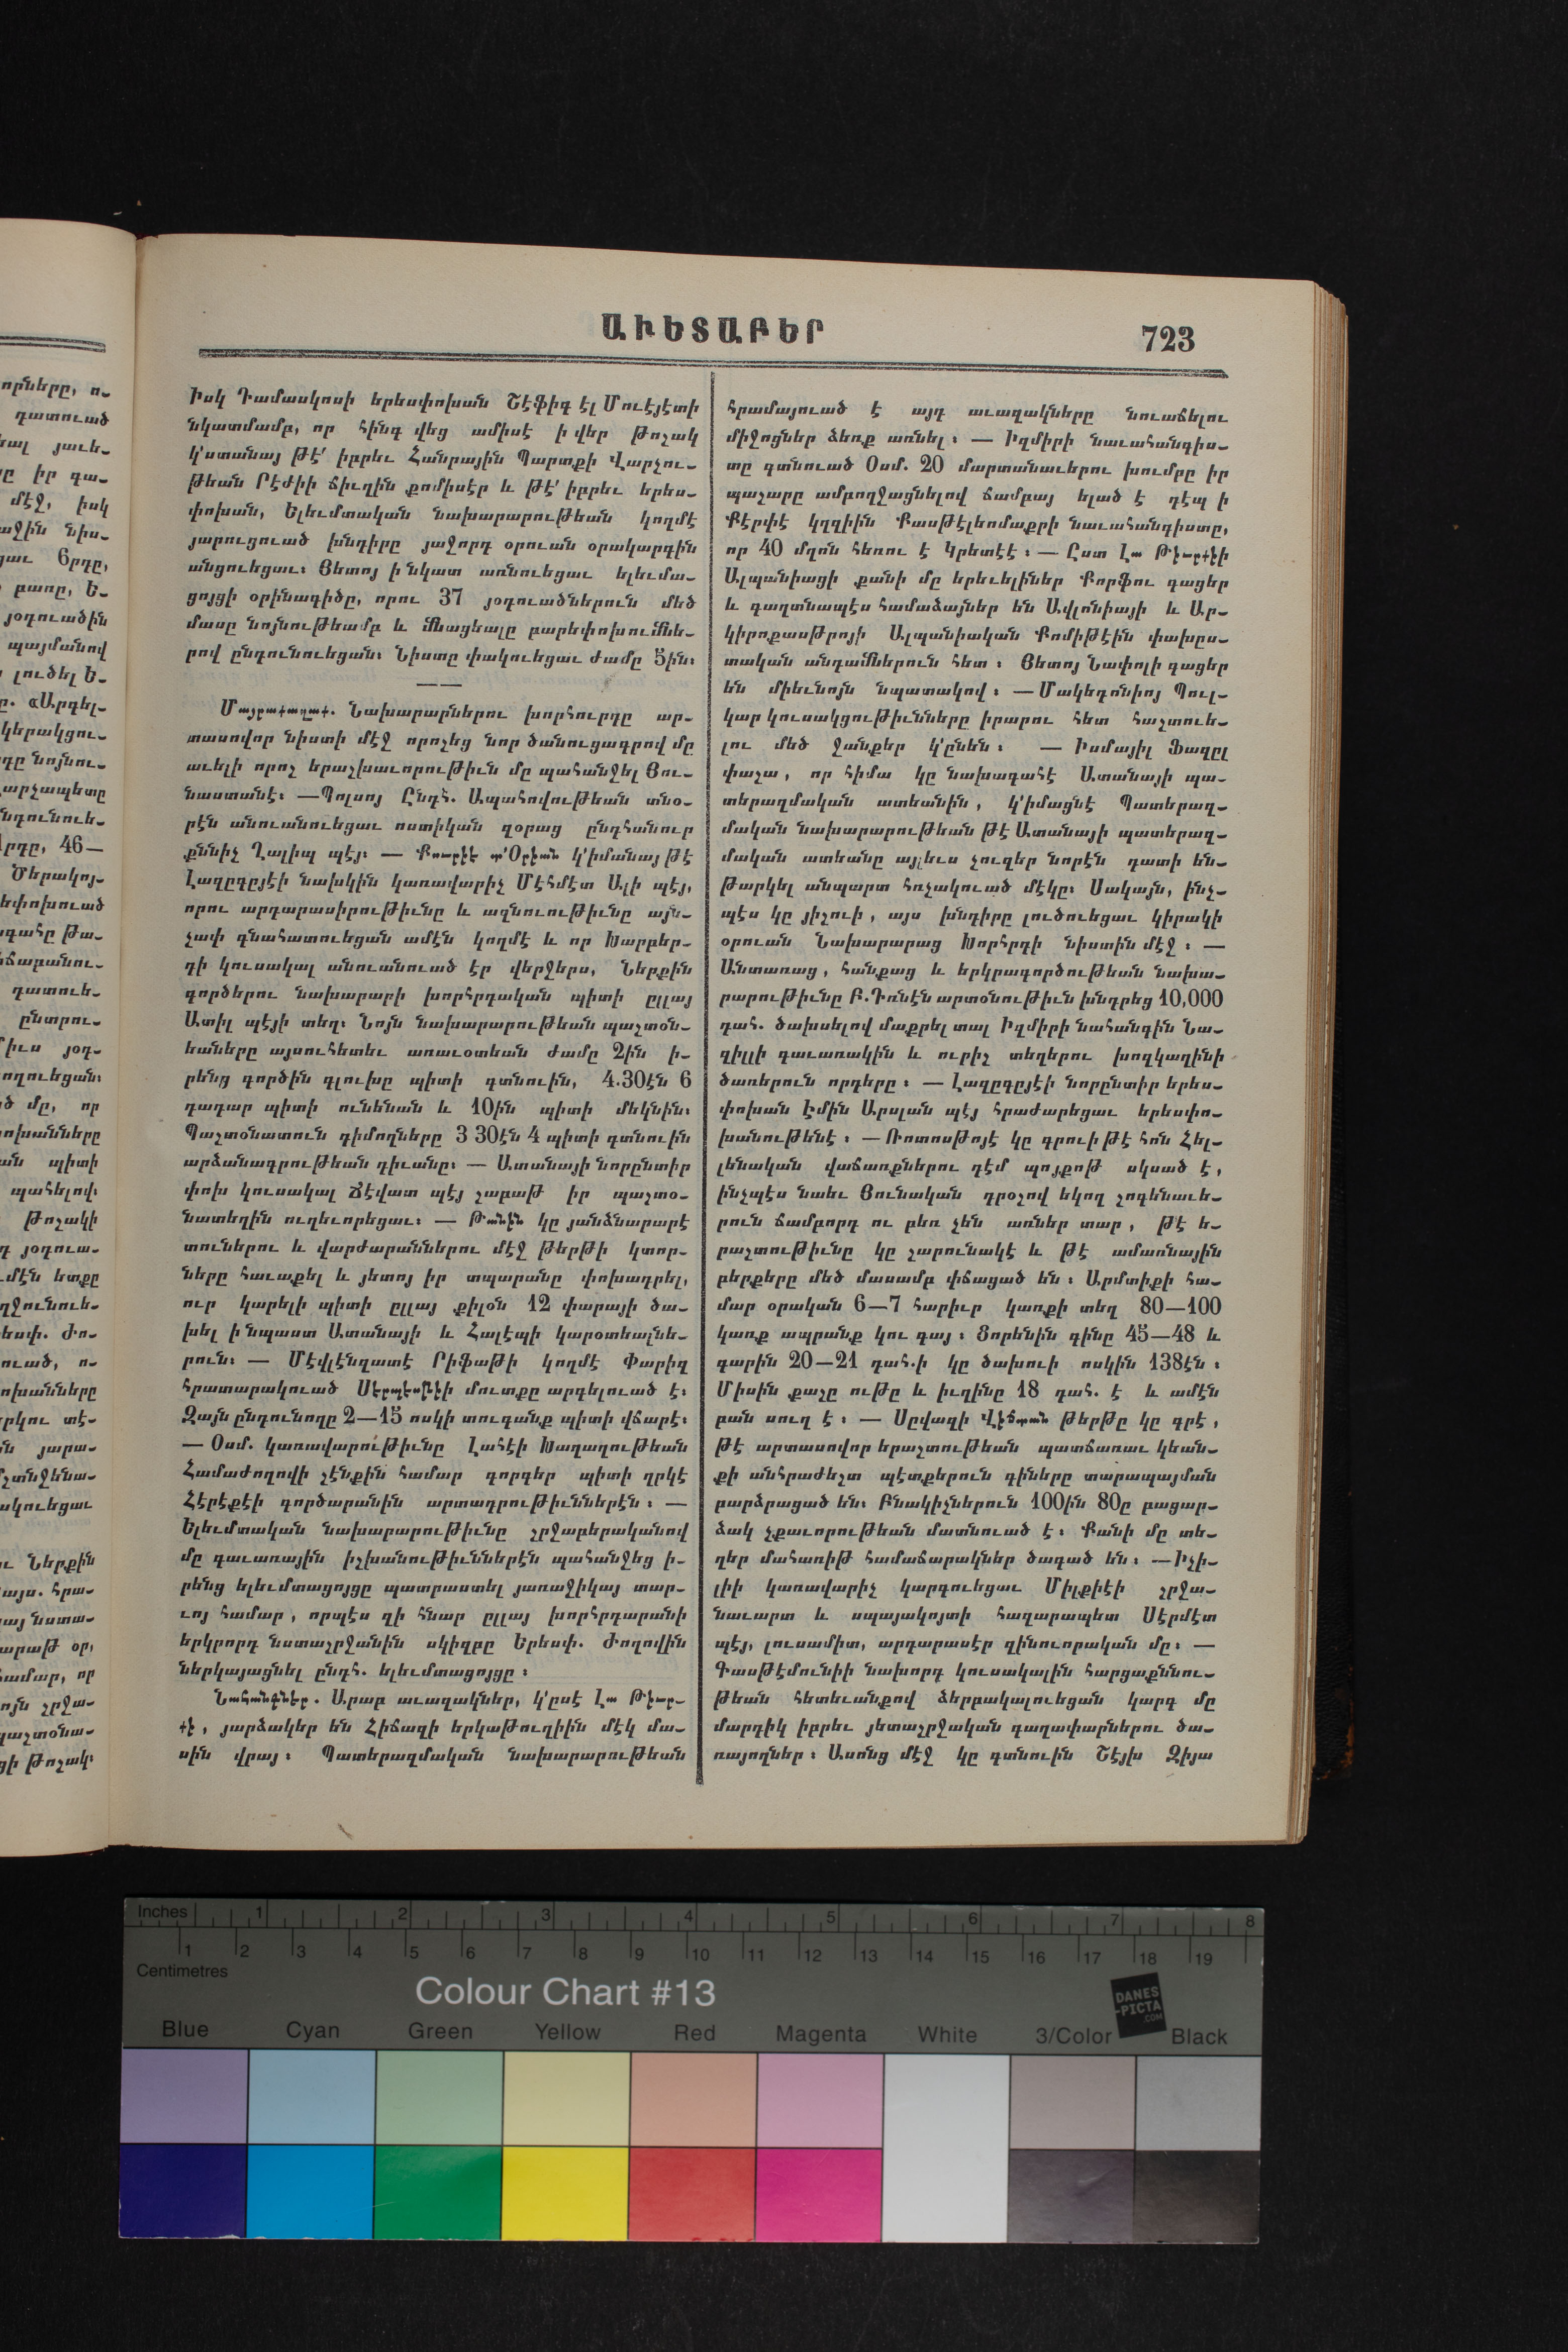 ԱՒԵՏԱԲԵՐ
723
Իսկ Դամասկոսի երեսփոխան Շէֆիգ էլ Մուէյէտի
նկատմամբ, որ հինգ վեց ամիսէ ի վեր թոշակ
կ'ստանայ թէ՛ իբրեւ Հանրային Պարտքի Վարչու-
թեան Րէժիի ճիւղին քոմիսէր և թէ՛ իբրեւ երես-
փոխան, Ելեւմտական նախարարութեան կողմէ
յարուցուած խնդիրը յաջորդ օրուան օրակարգին
անցուեցաւ։ Յետոյ ի նկատ առնուեցաւ ելեւմա-
ցոյցի օրինագիծը, որու 37 յօդուածներուն մեծ
մասը նոյնութեամբ և մնացեալը բարեփոխումնե-
րով ընդունուեցան։ Նիստը փակուեցաւ ժամը 5ին։
Մայրաքաղաք. Նախարարներու խորհուրդը ար-
տասովոր նիստի մէջ որոշեց նոր ծանուցագրով մը
աւելի որոշ երաշխաւորութիւն մը պահանջել Յու-
նաստանէ։ —Պոլսոյ Ընդհ. Ապահովութեան տնօ-
րէն անուանուեցաւ ոստիկան զօրաց ընդհանուր
քննիչ Ղալիպ պէյ։ — Քուրիէ տ'Օրիան կ'իմանայ թէ
Լազըգըյէի նախկին կառավարիչ Մէհմէտ Ալի պէյ,
որու արդարասիրութիւնը և ազնուութիւնը այն-
չափ գնահատուեցան ամէն կողմէ և որ Խարբեր-
դի կուսակալ անուանուած էր վերջերս, Ներքին
գործերու նախարարի խորհրդական պիտի ըլլայ
Ատիլ պէյի տեղ։ Նոյն նախարարութեան պաշտօն-
եաները այսուհետեւ առաւօտեան ժամը 2ին ի-
րենց գործին գլուխը պիտի գտնուին, 4.30էն 6
դադար պիտի ունենան և 10ին պիտի մեկնին։
Պաշտօնատուն դիմողները 3 30էն 4 պիտի գտնուին
արձանագրութեան դիւանը։ — Ատանայի նորընտիր
փոխ կուսակալ Ճէվատ պէյ շաբաթ իր պաշտօ-
նատեղին ուղեւորեցաւ։ — Թանին կը յանձնարարէ
տուներու և վարժարաններու մէջ թերթի կտոր-
ները հաւաքել և յետոյ իր տպարանը փոխադրել,
ուր կարելի պիտի ըլլայ քիլօն 12 փարայի ծա-
խել ի նպաստ Ատանայի և Հալէպի կարօտեալնե-
րուն։ — Մէվլէնզատէ Րիֆաթի կողմէ Փարիզ
հրատարակուած Սէրպէսթիի մուտքը արգելուած է։
Զայն ընդունողը 2—15 ոսկի տուգանք պիտի վճարէ։
— Օսմ. կառավարութիւնը Լահէի Խաղաղութեան
Համաժողովի շէնքին համար գորգեր պիտի ղրկէ
Հէրէքէի գործարանին արտադրութիւններէն։ —
Ելեւմտական նախարարութիւնը շրջաբերականով
մը գաւառային իշխանութիւններէն պահանջեց ի-
րենց ելեւմտացոյցը պատրաստել յառաջիկայ տար-
ւոյ համար, որպէս զի հնար ըլլայ խորհրդարանի
երկրորդ նստաշրջանին սկիզբը Երեսփ. Ժողովին
ներկայացնել ընդհ. ելեւմտացոյցը։
Նահանգներ. Արաբ աւազակներ, կ'ըսէ Լա Թիւր-
քի, յարձակեր են Հիճազի երկաթուղիին մէկ մա-
սին վրայ։ Պատերազմական նախարարութեան
հրամայուած է այդ աւազակները նուաճելու
միջոցներ ձեռք առնել։ — Իզմիրի նաւահանգիս-
տը գտնուած Օսմ. 20 մարտանաւերու խումբը իր
պաշարը ամբողջացնելով ճամբայ ելած է դէպ ի
Քէրփէ կղզիին Քասթէլեոմաքրի նաւահանգիստը,
որ 40 մղոն հեռու է Կրետէէ։ — Ըստ Լա Թիւրքիի
Ալպանիացի քանի մը երեւելիներ Քորֆու գացեր
և գաղտնապէս համաձայներ են Ավլոնիայի և Ար-
կիրոքասթրոյի Ալպանիական Քոմիթէին փախըս-
տական անդամներուն հետ։ Յետոյ Նափոլի գացեր
են միեւնոյն նպատակով։ —Մակեդոնիոյ Պուլ-
կար կուսակցութիւնները իրարու հետ հաշտուե-
լու մեծ ջանքեր կ'ընեն։ — Իսմայիլ Ֆազըլ
փաշա, որ հիմա կը նախագահէ Ատանայի պա-
տերազմական ատեանին, կ'իմացնէ Պատերազ-
մական նախարարութեան թէ Ատանայի պատերազ-
մական ատեանը այլեւս չուզեր նորէն դատի են-
թարկել անպարտ հռչակուած մէկը։ Սակայն, ինչ-
պէս կը յիշուի, այս խնդիրը լուծուեցաւ կիրակի
օրուան Նախարարաց Խորհրդի նիստին մէջ։ —
Անտառաց, հանքաց և երկրագործութեան նախա-
րարութիւնը Բ.Դռնէն արտօնութիւն խնդրեց 10,000
դահ. ծախսելով մաքրել տալ Իզմիրի նահանգին Նա-
զիլլի գաւառակին և ուրիշ տեղերու խոզկաղինի
ծառերուն որդերը։ — Լազըգըյէի նորընտիր երես-
փոխան Էմին Արսլան պէյ հրաժարեցաւ երեսփո-
խանութենէ։ —Ռոտոսթոյէ կը գրուի թէ հոն Հել-
լենական վաճառքներու դէմ պոյքոթ սկսած է,
ինչպէս նաեւ Յունական դրօշով եկող շոգենաւե-
րուն ճամբորդ ու բեռ չեն առներ տար, թէ ե-
րաշտութիւնը կը շարունակէ և թէ ամառնային
բերքերը մեծ մասամբ փճացած են։ Արմտիքի հա-
մար օրական 6—7 հարիւր կառքի տեղ 80—100
կառք ապրանք կու գայ։ Ցորենին գինը 45—48 և
գարին 20—21 դահ.ի կը ծախուի ոսկին 138էն։
Միսին քաշը ութը և իւղինը 18 դահ. է և ամէն
բան սուղ է։ — Սըվազի Վիճտան թերթը կը գրէ,
թէ արտասովոր երաշտութեան պատճառաւ կեան-
քի անհրաժեշտ պէտքերուն գիները տարապայման
բարձրացած են։ Բնակիչներուն 100ին 80ը բացար-
ձակ չքաւորութեան մատնուած է։ Քանի մը տե-
ղեր մահառիթ համաճարակներ ծագած են։ —Իչի-
լիի կառավարիչ կարգուեցաւ Միլքիէի շրջա-
նաւարտ և սպայակոյտի հազարապետ Սէրմէտ
պէյ, լուսամիտ, արդարասէր զինուորական մը։ —
Գասթէմունիի նախորդ կուսակալին հարցաքննու-
թեան հետեւանքով ձերբակալուեցան կարգ մը
մարդիկ իբրեւ յետաշրջական գաղափարներու ծա-
ռայողներ։ Ասոնց մէջ կը գտնուին Շէյխ Զիյա
Inches 1 2 3 4 5 6 7 8
1 2 3 4 5 6 7 8 9 10 11 12 13 14 15 16 17 18 19
Centimetres
Colour Chart #13
DANES
-PICTA
.COM
Blue Cyan Green Yellow Red Magenta White 3/Color Black